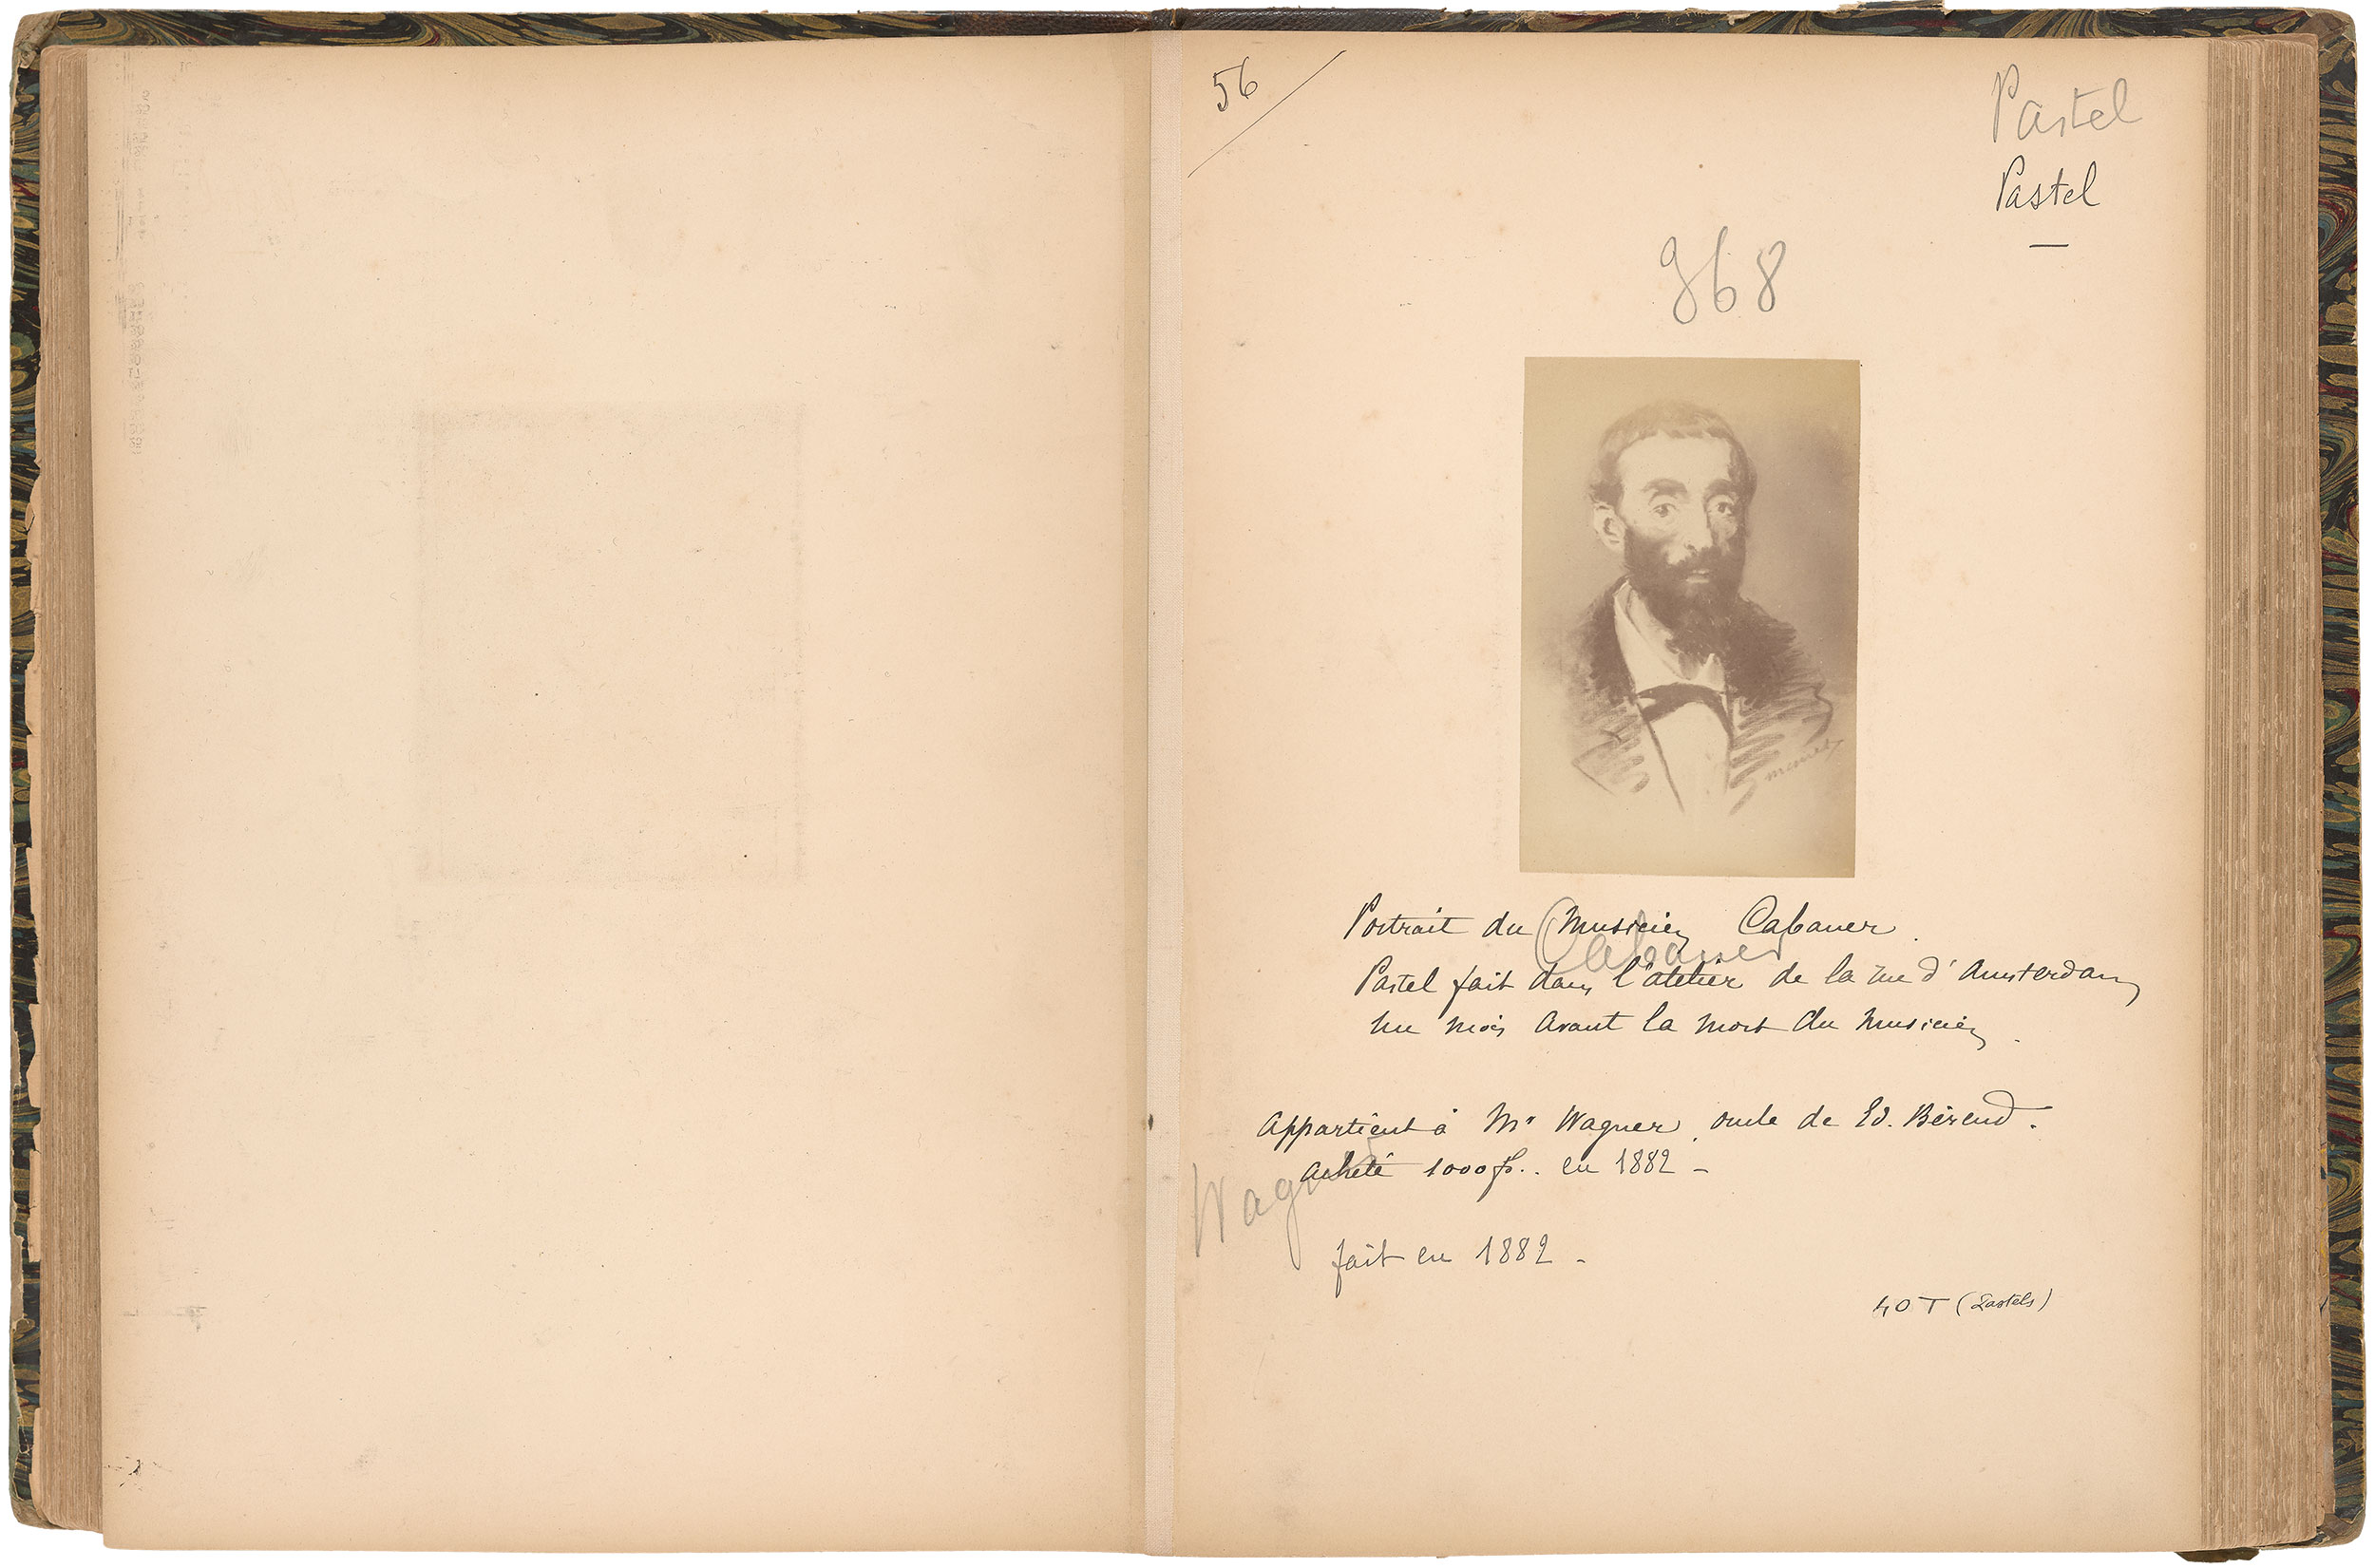 56
Pastel
Pastel
368
manet
Portrait du Musicien Cabaner.
Cabaner
Pastel fait dans l'atelier de la rue d'Amsterdam
un mois avant la mort du musicien.
Appartient à Mr Wagner, oncle de Ed. Bérend.
acheté 1000 f.. en 1882 -
Wagner
fait en 1882 -
40 T (Pastels)